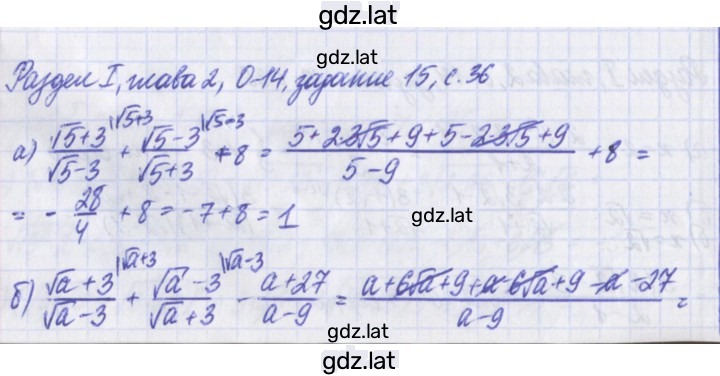 gdz.lat
gdz.lat
Раздел I, глава 2, О-14, задание 15, с. 36
а) (√5+3)/(√5-3) |√5+3 + (√5-3)/(√5+3) |√5-3 + 8 = (5+2·3√5+9+5-2·3√5+9)/(5-9) + 8 =
= - 28/4 + 8 = -7+8 = 1
gdz.lat
б) (√a+3)/(√a-3) |√a+3 + (√a-3)/(√a+3) |√a-3 - (a+27)/(a-9) = (a+6√a+9+a-6√a+9-a-27)/(a-9) =
gdz.lat
gdz.lat